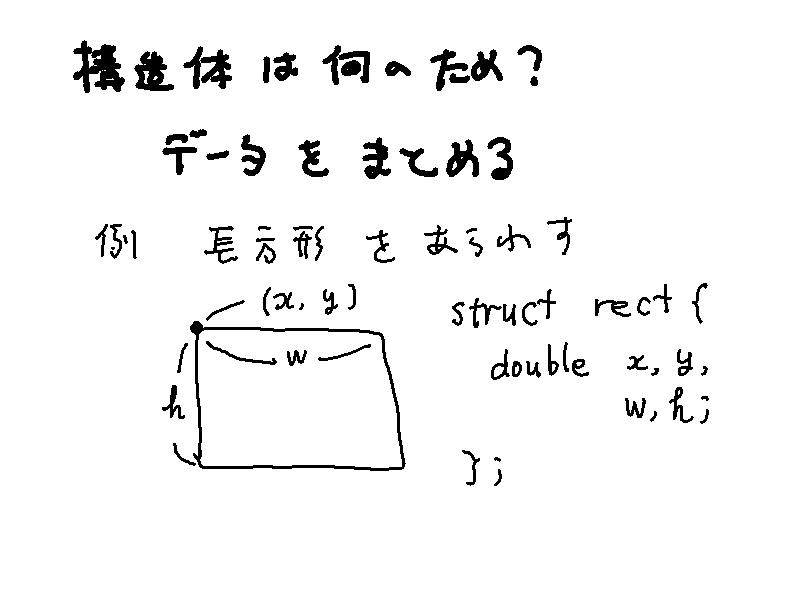 構造体は何のため?
データをまとめる
例 長方形をあらわす
(x, y)
w
h
struct rect {
double x, y,
w, h;
};